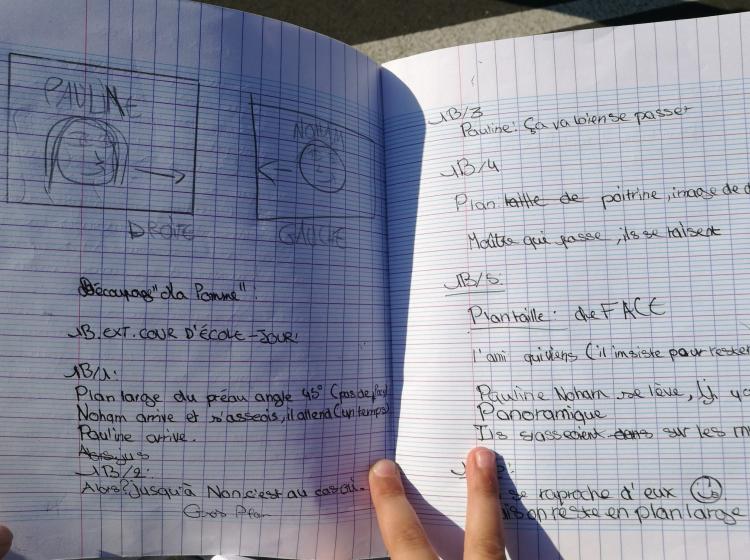 PAULINE
NOHAM
DROITE
GAUCHE
Découpage "La Pomme" :
1B. EXT. COUR D'ÉCOLE - JOUR:
1B/1:
Plan large du préau angle 45° (pas de
Noham arrive et s'asseois, il attend (un temps)
Pauline arrive.
1B/2:
Alors? jusqu'à Non c'est au
Gros Plan
1B/3
Pauline: Ça va bien se passer
1B/4
Plan taille de poitrine, image de
Maître qui passe, ils se taisent
1B/5:
Plan taille: de FACE
l'ami qui viens (il insiste pour rester
Pauline Noham se lève,
Panoramique
Ils s'assoient dans sur les
se raproche d'eux
on reste en plan large